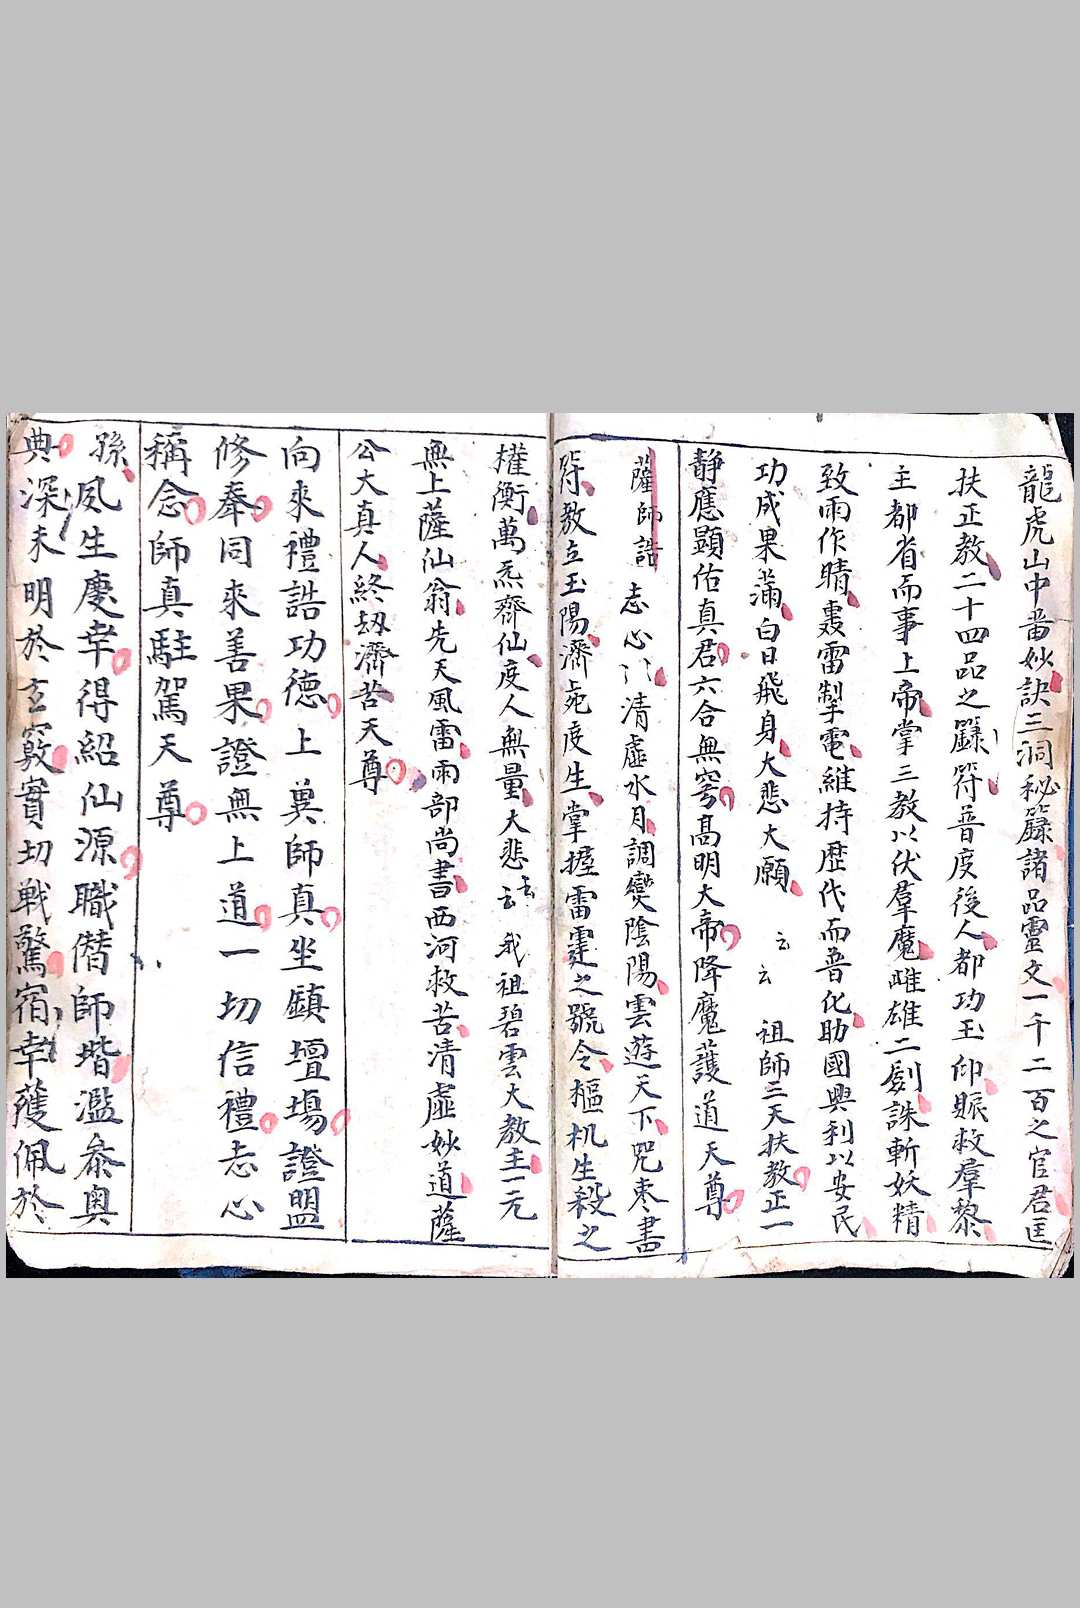 龍虎山中啬妙訣三洞秘籙諸品靈文一千二百之官君匡
扶正教二十四品之籙符普度後人都功玉印賑救羣黎
主都省而事上帝掌三教以伏羣魔雌雄二劍誅斬妖精
致雨作晴轟雷掣電維持歷代而普化助國興利以安民
功成果滿白日飛身大悲大願 云云 祖師三天扶教正一
静應顕佑真君六合無窮高明大帝降魔護道天尊
薩師誥 志心 清虛水月調變陰陽雲遊天下咒棗書
符教立玉陽濟死度生掌握雷霆之號令樞机生殺之
權衡萬炁齋仙度人無量大悲云云 我祖碧雲大教主一元
無上薩仙翁先天風雷雨部尚書西河救苦清虛妙道薩
公大真人終劫濟苦天尊
向來禮誥功德上異師真坐鎮壇場證盟
修奉同來善果證無上道一切信禮志心
稱念師真駐駕天尊
孫夙生慶幸得紹仙源職僭師階濫叅奥
典深未明於玄竅實切戦驚宿幸獲佩於